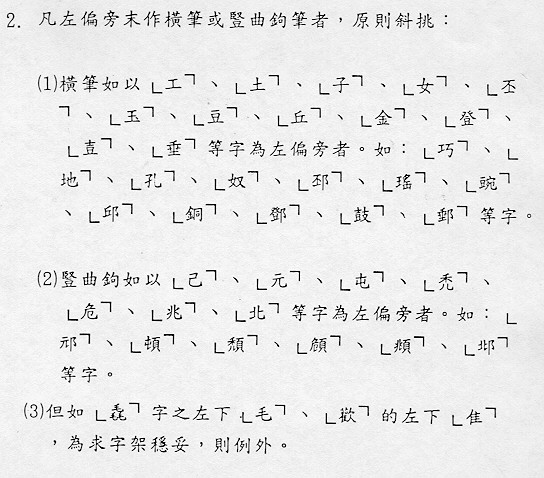 2. 凡左偏旁末作橫筆或豎曲鉤筆者，原則斜挑：
(1)橫筆如以「工」、「土」、「子」、「女」、「丕
」、「玉」、「豆」、「丘」、「金」、「登」、
「壴」、「垂」等字為左偏旁者。如：「巧」、「
地」、「孔」、「奴」、「邳」、「瑤」、「豌」
、「邱」、「銅」、「鄧」、「鼓」、「郵」等字。
(2)豎曲鉤如以「己」、「元」、「屯」、「禿」、
「危」、「兆」、「北」等字為左偏旁者。如：「
邧」、「頓」、「頹」、「頠」、「頫」、「邶」
等字。
(3)但如「毳」字之左下「毛」、「歡」的左下「隹」
，為求字架穩妥，則例外。